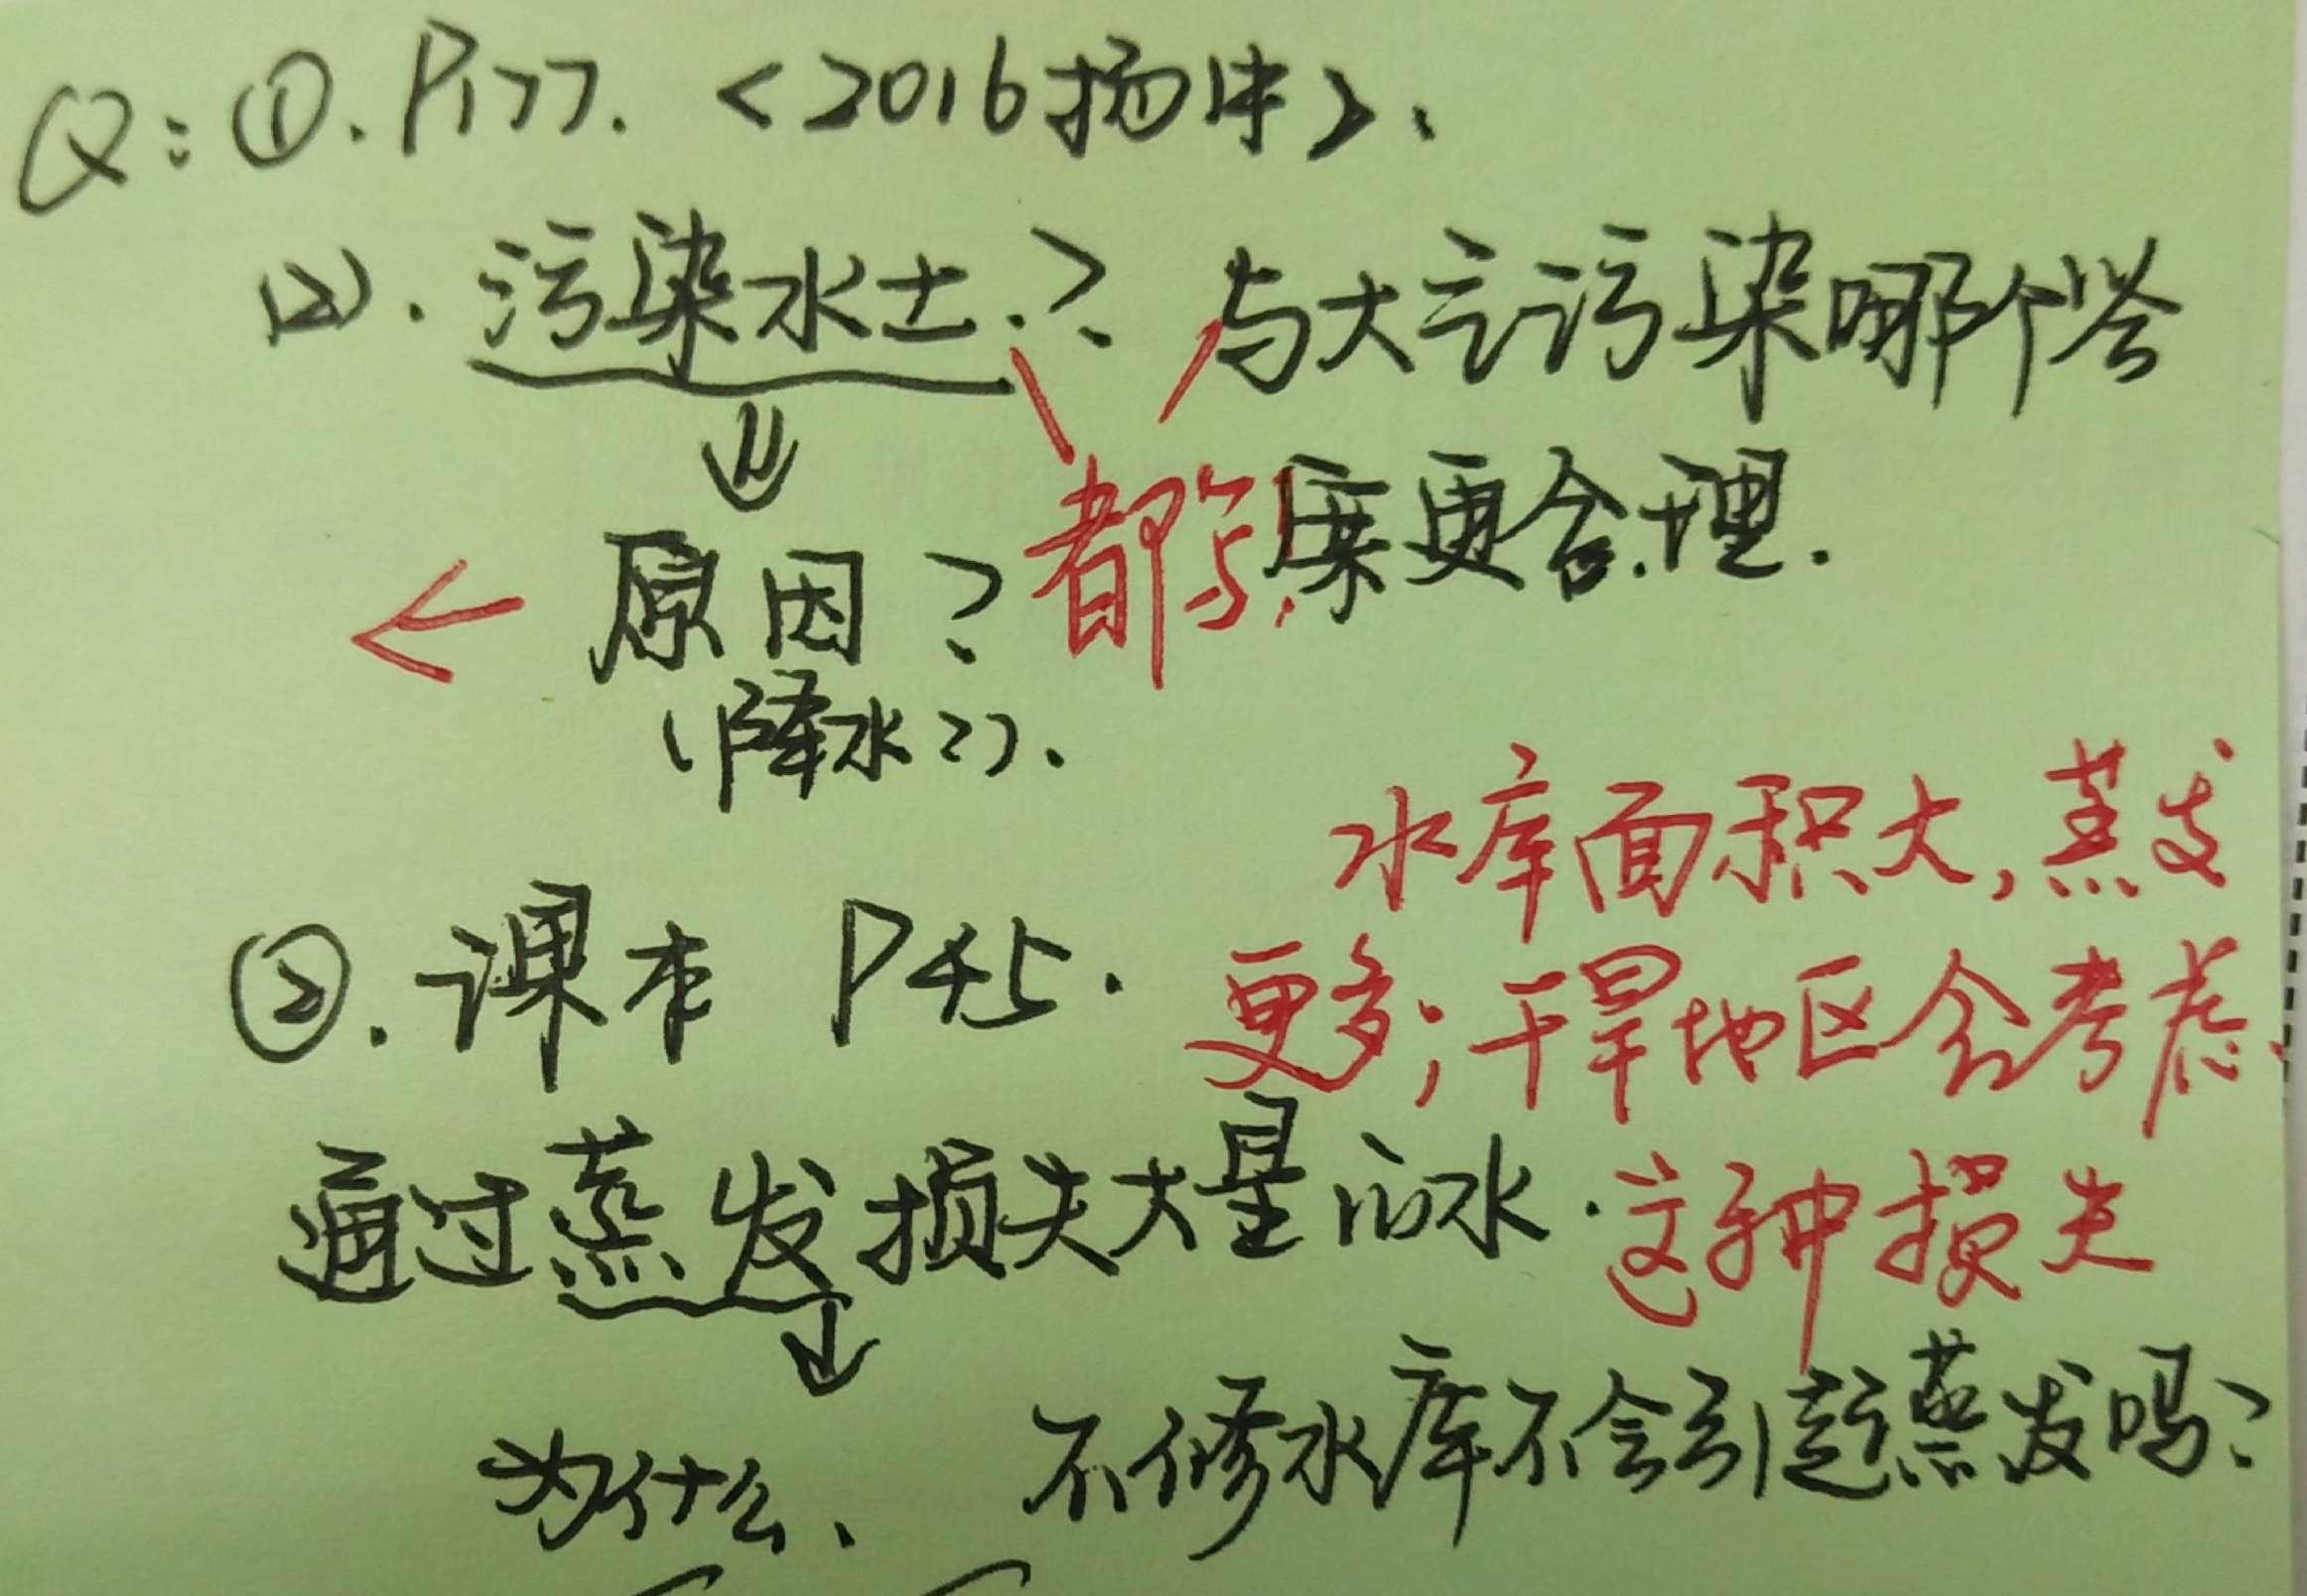 Q:①.P177.<2016扬中>.
(2).污染水土.?与大气污染哪个答
案更合理.
都写!
原因?
(降水??).
②.课本 P45.
水库面积大,蒸发
更多;干旱地区会考虑.
这种损失
通过蒸发损失大量的水.
为什么、不修水库不会引起蒸发吗?